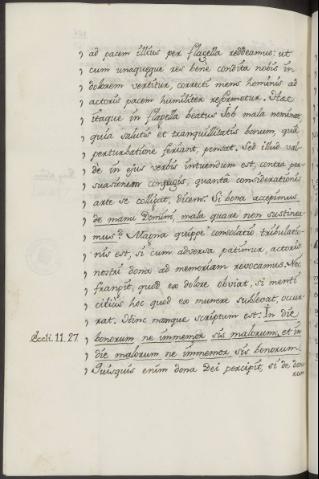 , ad pacem illius per flagella reddeamus: ut
, cum unaquæque res bene condita nobis in
, dolorem vertitur, correcti mens hominis ad
, actoris pacem humiliter reformetur. Hæc
, itaque in flagella beatus Job mala nominat,
, quia salutis et tranquillitatis bonum, quâ
, perturbatione feriant, pensat. Sed illud val-
, de in ejus verbis intuendum est, contra per-
, suasionem conjugis, quantâ considerationis
, arte se colligat, dicens: Si bona accepimus
, de manu Domini, mala quare non sustinea-
, mus? Magna quippe consolatio tribulatio-
, nis est, si cum adversa patimur, actoris
, nostri dona ad memoriam revocamus. Nec
, frangit, quod ex dolore obviat, si menti
, citius hoc quod ex munere sublevat, occur-
, rat. Hinc namque scriptum est: In die
Eccli. 11. 27. , bonorum ne immemor sis malorum, et in
, die malorum ne immemor sis bonorum.
, Quisquis enim dona Dei percipit, si de do-